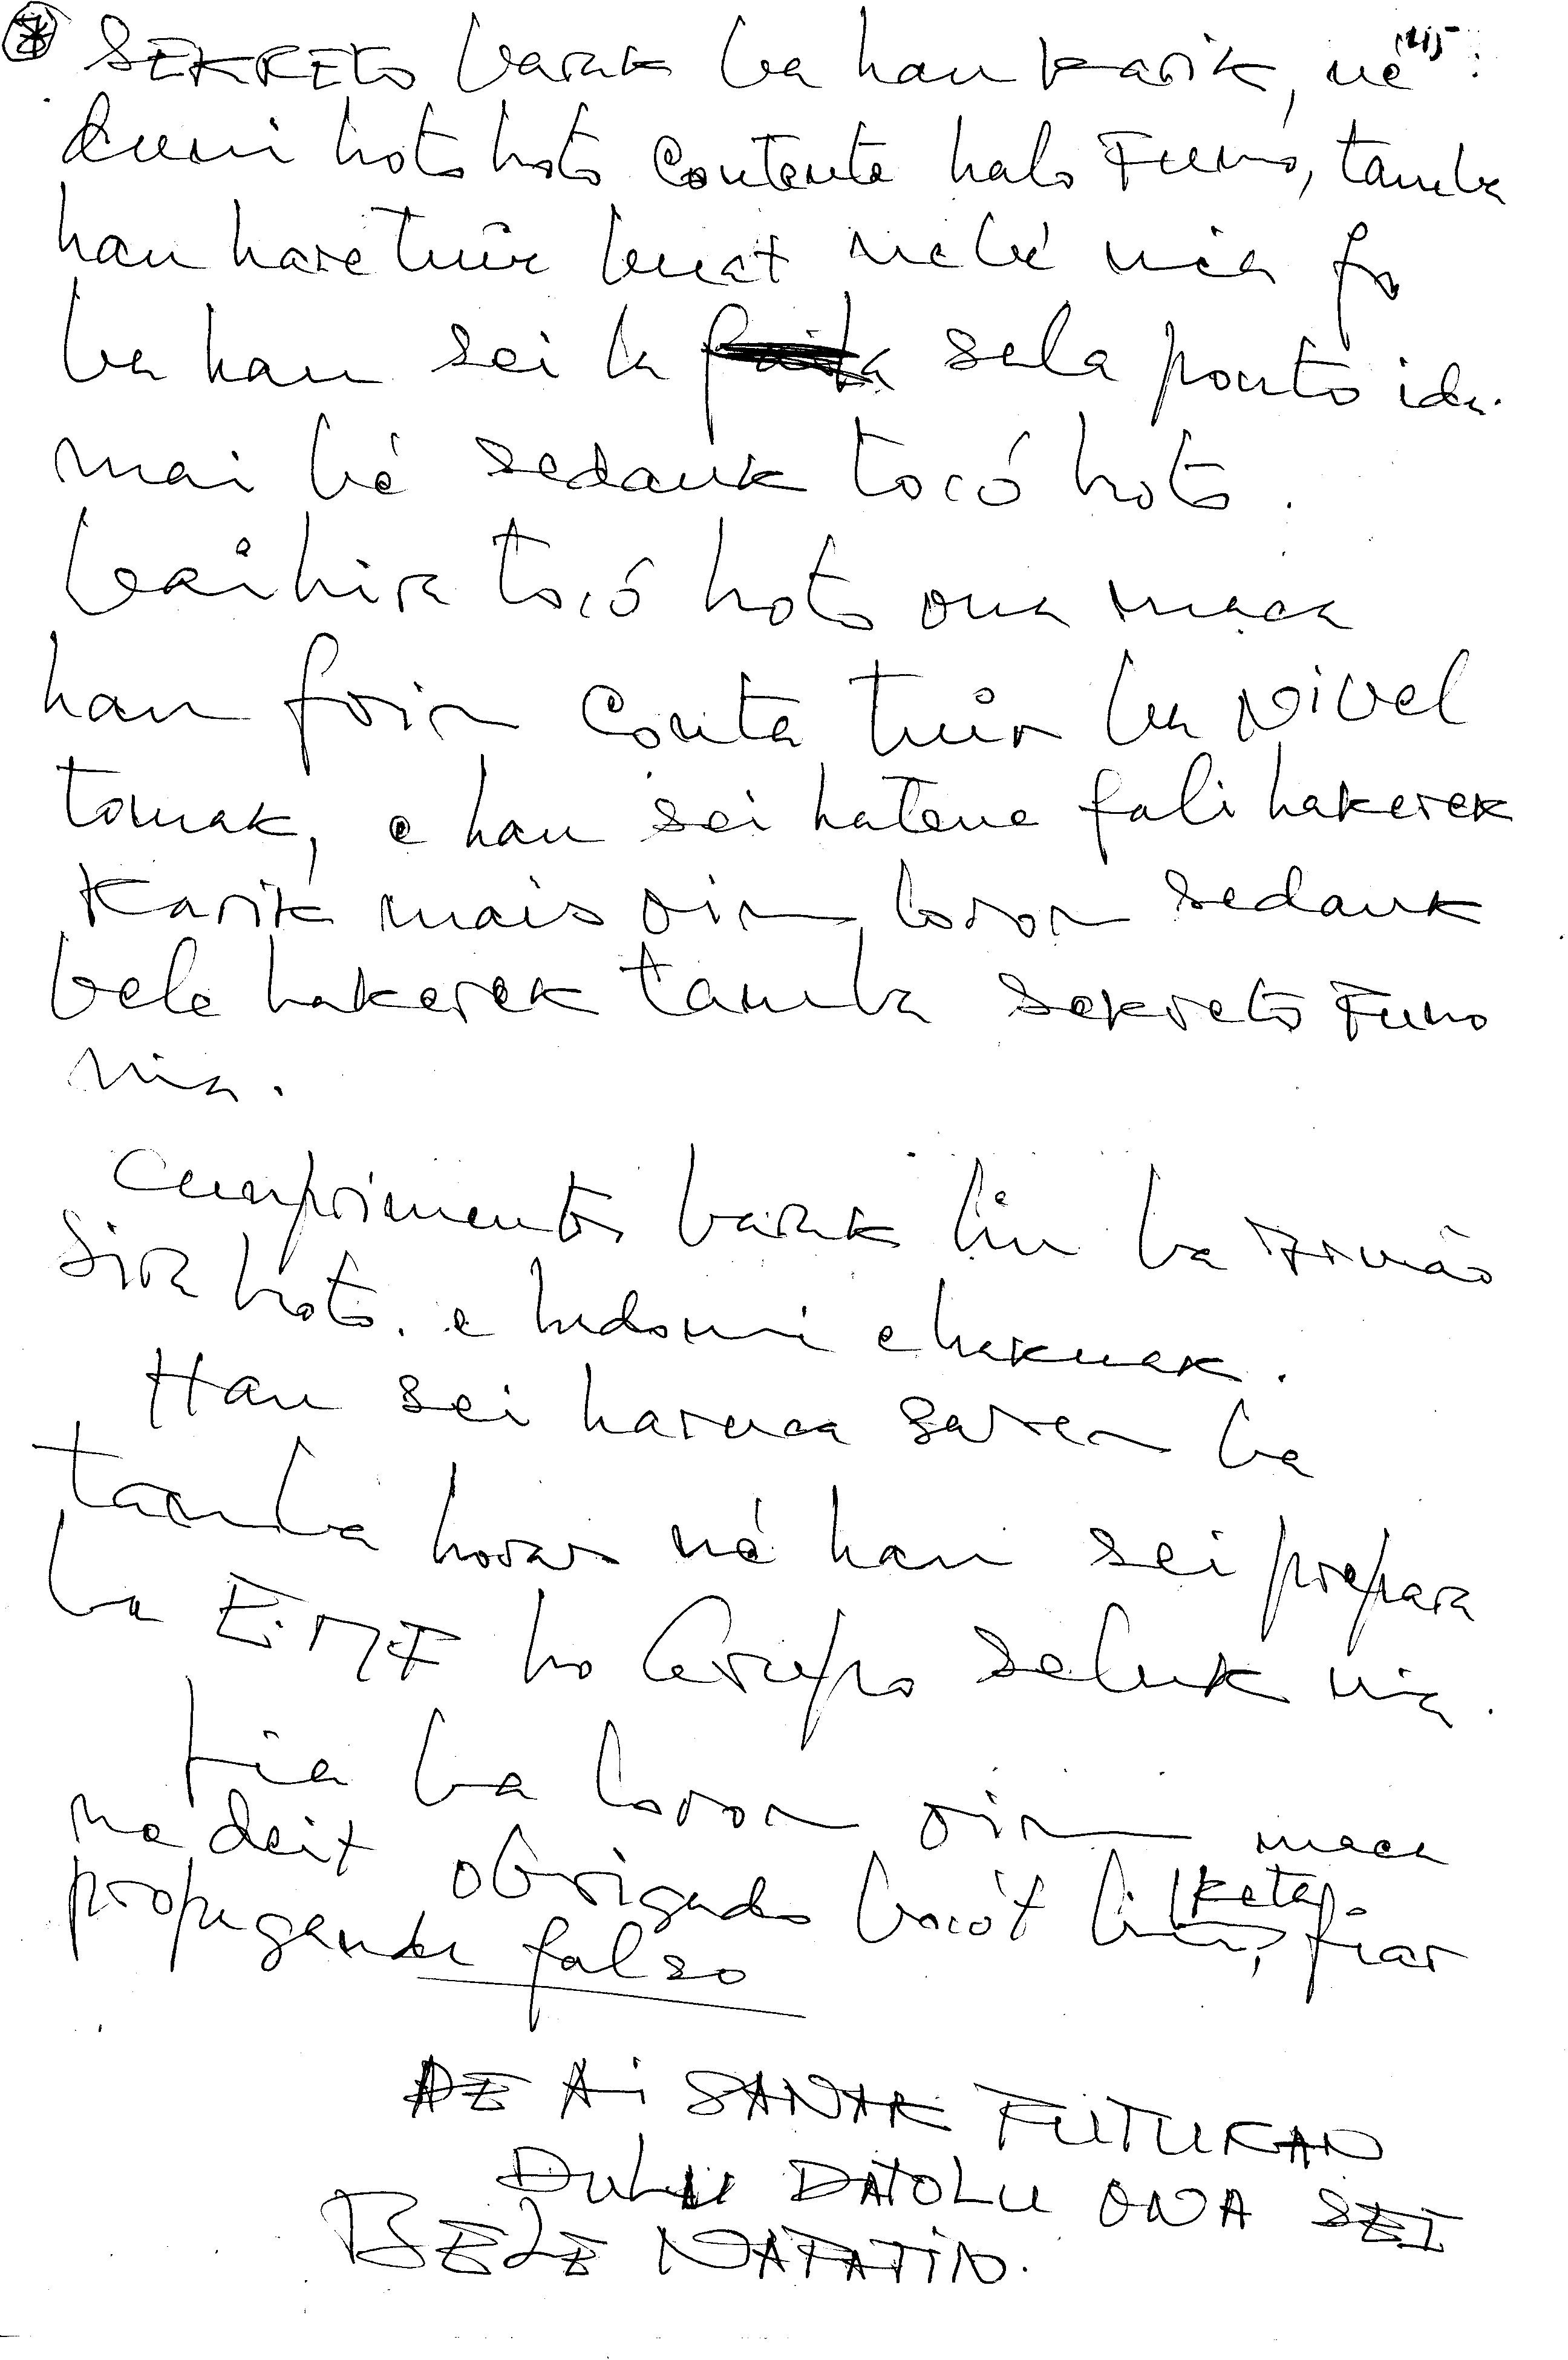 SEKRETO barak ba hau Karik, né :
duni hoto hoto Contente halo Funo, tamba
hau hare tuir buat nebé nia fo
ba hau sei la sala ponto ida.
mai bé sedauk tocó hoto.
bainhira tocó hoto ona maca
hau foin Conta tuir ba Nivel
tomak, e hau sei hatene fali hakerek
Karik mais oin loron sedauk
bele hakerek tamba sekreto Funo
nia.
Cumprimento barak liu ba Irmão
Sira hoto. e hadomi e haknak.
Hau sei haruca saren ba
tamba horas né hau sei prepara
ba E.M.F ho Grupo seluk nia.
Lia ba loron oin maca
ne deit obrigado bocót liu, keta fiar
propaganda falso
DE AI SANAK FUTUKAN
DULU DATOLU ONA SEI
BELE NAFATIN.